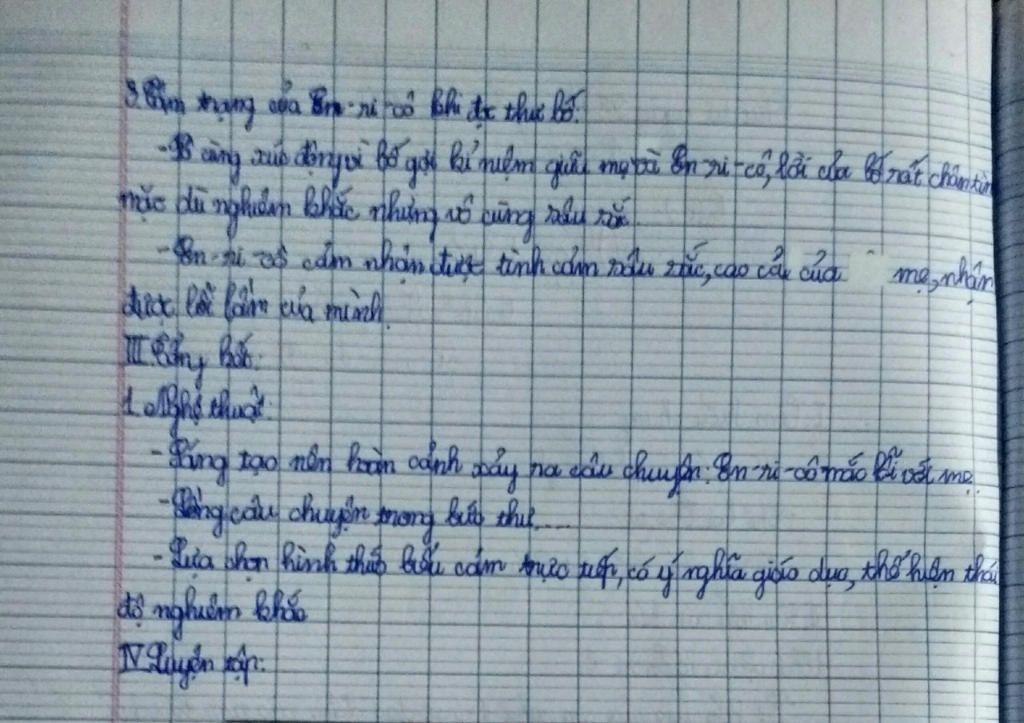 3. Tâm trạng của En-ri-cô khi đọc thư bố.
- Vô cùng xúc động vì bố gợi kỉ niệm giữa mẹ và En-ri-cô, lời của bố rất chân tìn
mặc dù nghiêm khắc nhưng vô cùng sâu sắc.
- En-ri-cô cảm nhận được tình cảm sâu sắc, cao cả của mẹ, nhận
được lỗi lầm của mình.
III. Tổng kết:
1. Nghệ thuật:
- Sáng tạo nên hoàn cảnh xảy ra câu chuyện: En-ri-cô mắc lỗi với mẹ.
- Lồng câu chuyện trong bức thư.....
- Lựa chọn hình thức biểu cảm trực tiếp, có ý nghĩa giáo dục, thể hiện thái
độ nghiêm khắc
IV Luyện tập: